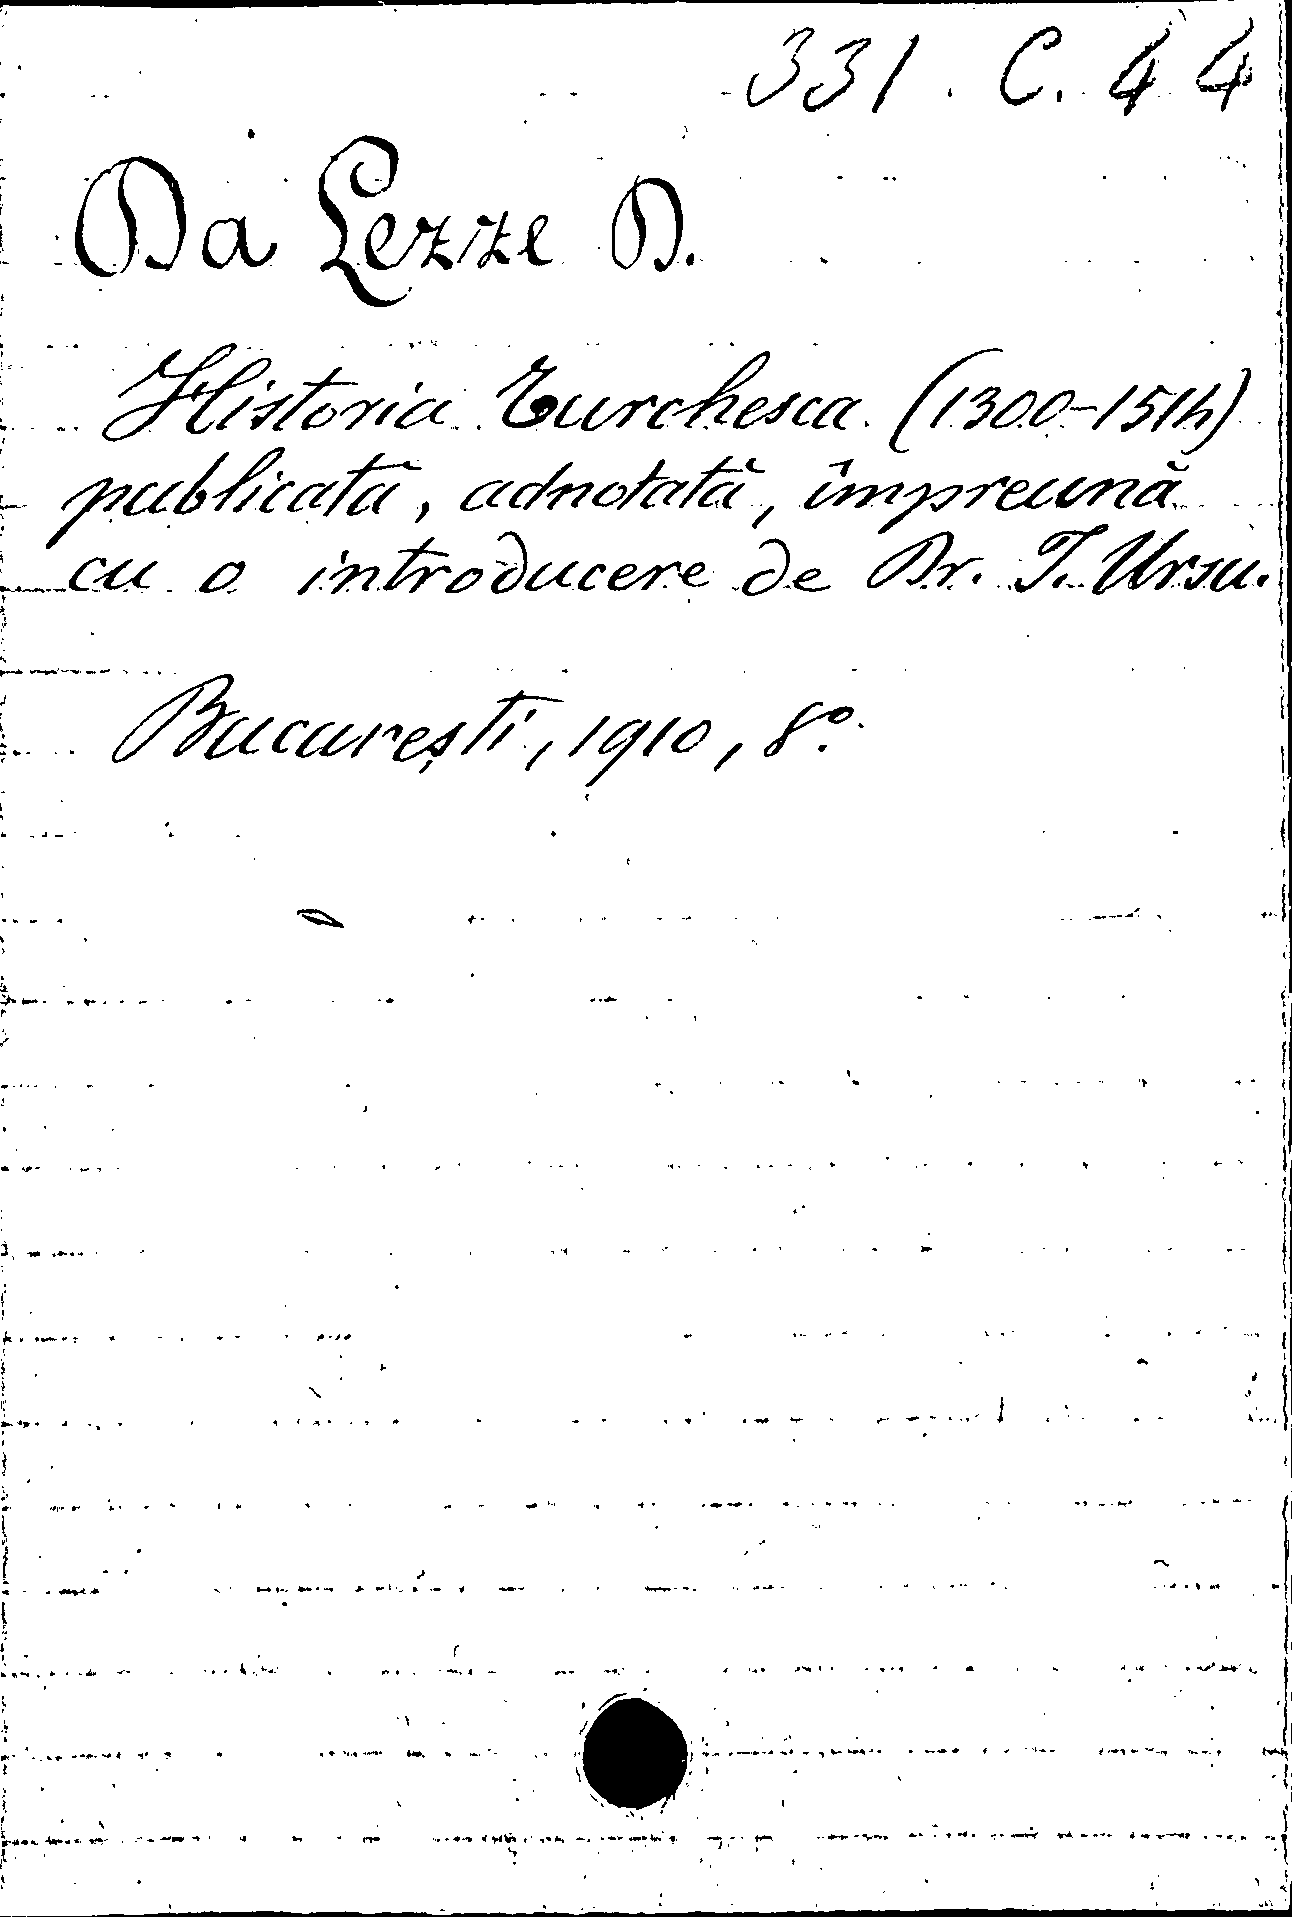 331. C. 44
Da Lezze D.
Historia Turchesca (1300-1514)
publicată, adnotată, împreună
cu o introducere de Dr. I. Ursu.
București, 1910, 8º.